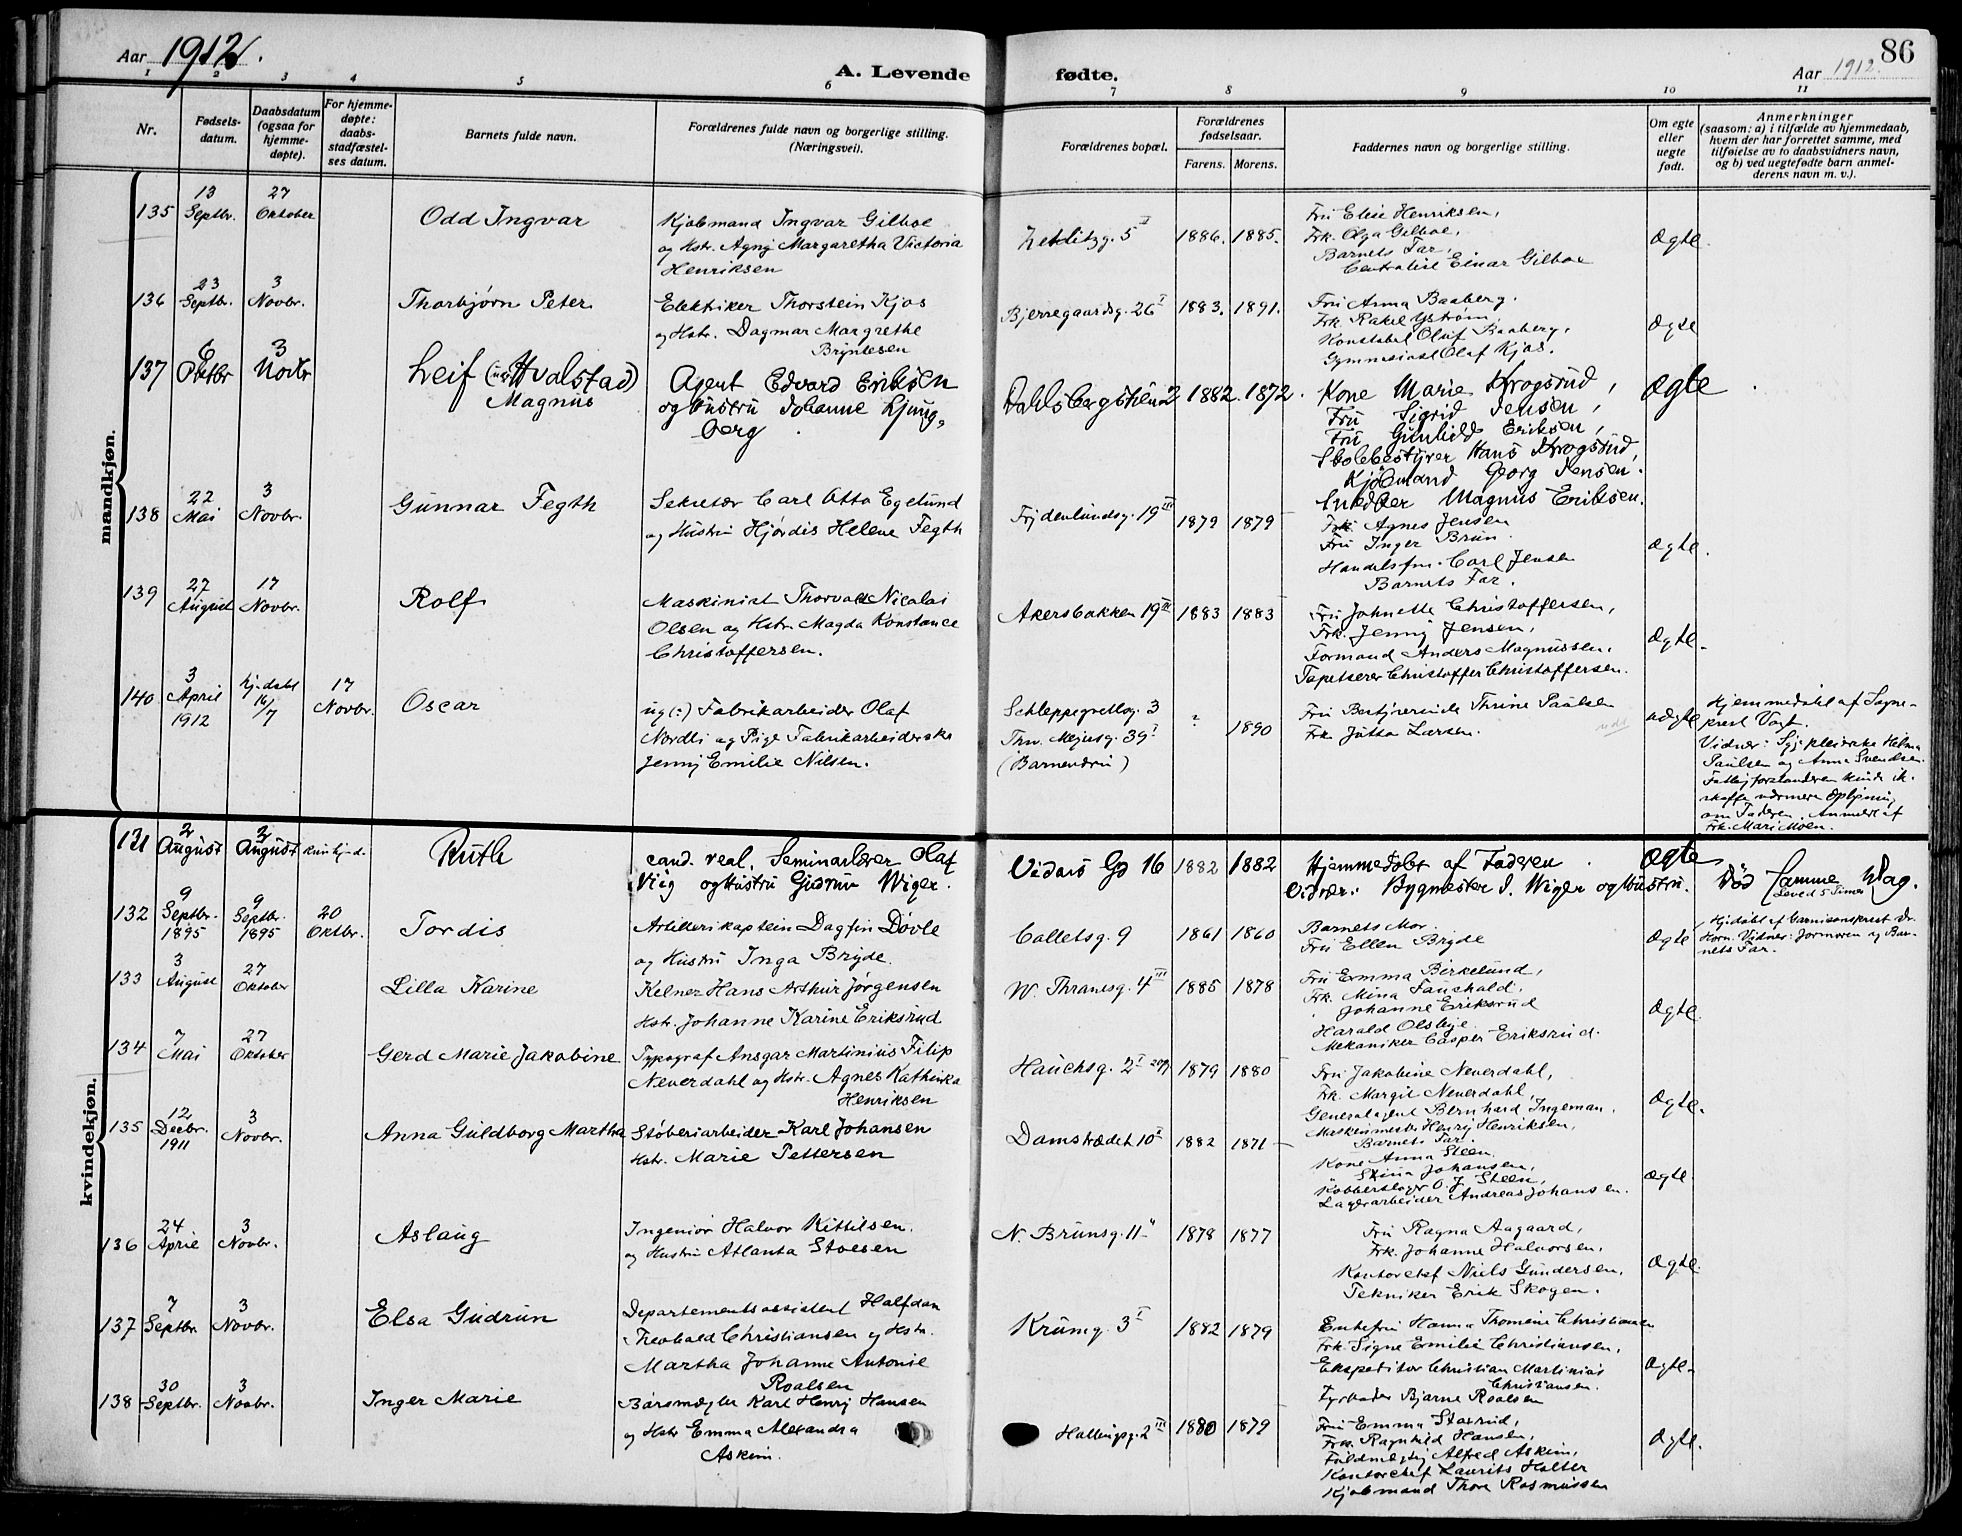 Aar 1912.
A. Levende
fødte.
Aar 1912.
86
1 2 3 4 5 6 7 8 9 10 11
Nr.
Fødsels-
datum.
Daabsdatum
(ogsaa for
hjemme-
døpte).
For hjemme-
døpte:
daabs-
stadfæstel-
ses datum.
Barnets fulde navn.
Forældrenes fulde navn og borgerlige stilling.
(Næringsvei).
Forældrenes bopæl.
Forældrenes
fødselsaar.
Farens.
Morens.
Faddernes navn og borgerlige stilling.
Om egte
eller
uegte
født.
Anmerkninger
(saasom: a) i tilfælde av hjemmedaab,
hvem der har forrettet samme, med
tilføielse av to daabsvidners navn,
og b) ved uegtefødte barn anmel-
derens navn m. v.).
mandkjøn.
135
13
Septbr.
27
Oktober
Odd Ingvar
Kjøbmand Ingvar Gilboe
og Hstr. Agny Margaretha Victoria
Henriksen
Zetlitzg. 5 II
1886.
1885.
Fru Elise Henriksen,
Frk. Olga Gilboe,
Barnets Far,
Einar Gilboe
Ægte.
136
23
Septbr.
3
Novbr.
Thorbjørn Peter
Elektriker Thorstein Kjos
og Hstr. Dagmar Margrethe
Bryntesen
Bjerregaardsg. 26 I
1883.
1891.
Fru Anna Baaberg.
Frk. Rakel Ystrøm,
Konstabel Oluf Baaberg,
Gymnasiast Olaf Kjos.
Ægte
137
6
Oktbr
3
Novbr
Leif Hvalstad)
Magnus
Agent Edvard Eriksen
og Hustru Johanne Ljung-
berg
Dahlsbergstien 2
1882.
1872.
Kone Marie Krogsrud,
Fru Sigrid Jensen,
Fru Gunhild Eriksen,
Skolebestyrer Hans Krogsrud,
Kjøbmand Georg Jensen.
Magnus Eriksen.
Ægte
138
22
Mai
3
Novbr.
Gunnar Fegth
Sekretær Carl Otto Egelund
og Hustru Hjørdis Helene Fegth
Frydenlundsg. 19 III
1879
1879
Frk. Agnes Jensen
Fru Inger Brun.
Handelsfm. Carl Jensen
Barnets Far.
Ægte.
139
27
August
17
Novbr.
Rolf
Maskinist Thorvald Nicolai
Olsen og Hstr. Magda Konstance
Christoffersen.
Akersbakken 19 III
1883
1883
Fru Johnette Christoffersen,
Frk. Jenny Jensen,
Formand Anders Magnussen,
Tapetserer Christoffer Christoffersen.
Ægte.
140
3
April
1912
hj.døbt
16/7
17
Novbr.
Oscar
ug(:) Fabrikarbeider Olaf
Nordli og Pige Fabrikarbeiderske
Jenny Emilie Nilsen.
Schleppegrellsg. 3
Thv. Meyersg. 39 I
?
1890
Fru Bestyrerinde Thrine Paulsen
Frk Jutta Larsen.
uægte
Hjemmedøbt af Sogne-
prest Vogt.
Vidner: Sygepleierske Helma
Paulsen og Anna Svendsen.
Fattigforstanderen kunde ik-
skaffe nærmere Oplysning
om Faderen. Anmeldt af
Frk. Mari Moen.
kvindekjøn.
131
2
August
2
August
kun hj.d.
Ruth
cand. real. Seminarlærer Olaf
Viig og Hustru Gudrun Wiger.
Vidars Gd 16
1882
1882
Hjemmedøbt af Faderen.
Vidner: Bygmester J. Wiger og Hustru.
Ægte
Død samme Dag.
(Leved 5 Timer)
132
9
Septbr.
1895
9
Septbr.
1895
20
Oktbr.
Tordis
Artillerikaptein Dagfin Døvle
og Hustru Inga Bryde.
Colletsg. 9
1861
1860
Barnets Mor,
Fru Ellen Bryde
Ægte
Hjdøbt af Garnisonsprest Dr.
Horn. Vidner: Jormoren og Bar-
nets Far.
133
3
August
27
Oktober
Lilla Karine
Kelner Hans Arthur Jørgensen
Hstr. Johanne Karine Eriksrud
W. Thranesg. 4 III
1885
1878
Fru Emma Birkelund,
Frk. Mina Fauchald,
Johanne Eriksrud
Harald Olsbye.
Mekaniker Casper Eriksrud.
Ægte.
134
7
Mai
27
Oktober
Gerd Marie Jakobine
Typograf Ansgar Martinius Filip
Neverdahl og Hstr. Agnes Kathinka
Henriksen
Hauchsg. 2 I
1879
1880
Fru Jakobine Neverdahl,
Frk. Margit Neverdahl,
Generalagent Bernhard Ingeman.
Maskinmester Henry Henriksen,
Barnets Far.
Ægte.
135
12
Decbr.
1911
3
Novbr.
Anna Guldborg Martha
Støberiarbeider Karl Johansen
Hstr. Marie Pettersen
Damstrædet 10 I
1882
1871
Kone Anna Steen,
" Stina Johansen,
Kobberslager O. J. Steen,
Lagerarbeider Andreas Johansen.
Ægte.
136
24
April
3
Novbr.
Aslaug
Ingeniør Halvor Kittilsen.
og Hustru Atlanta Stoesen
N. Brunsg. 11
1878
1877
Fru Ragna Aagaard,
Frk. Johanne Halvorsen,
Kontorchef Niels Gundersen,
Tekniker Erik Skogen.
Ægte.
137
7
Septbr.
3
Novbr.
Elsa Gudrun
Departementsassistent Halfdan
Theobald Christiansen og Hstr.
Martha Johanne Antonie
Roalsen
Krumg. 3 I
1882
1879
Enkefru Hanna Thomine Christiansen
Frk. Signe Emilie Christiansen,
Ekspeditør Christian Martinius
Christiansen.
Bjarne Roalsen
Ægte.
138
30
Septbr.
3
Novbr.
Inger Marie
Børsmægler Karl Henry Hansen
og Hstr Emma Alexandra
Askim.
Hallingsg. 2 III
1880
1879
Fru Emma Stasrud,
Frk. Ragnhild Hansen,
Fuldmægtig Alfred Askim,
Kontorchef Laurits Holter
Kjøbmand Thore Rasmussen
Ægte.